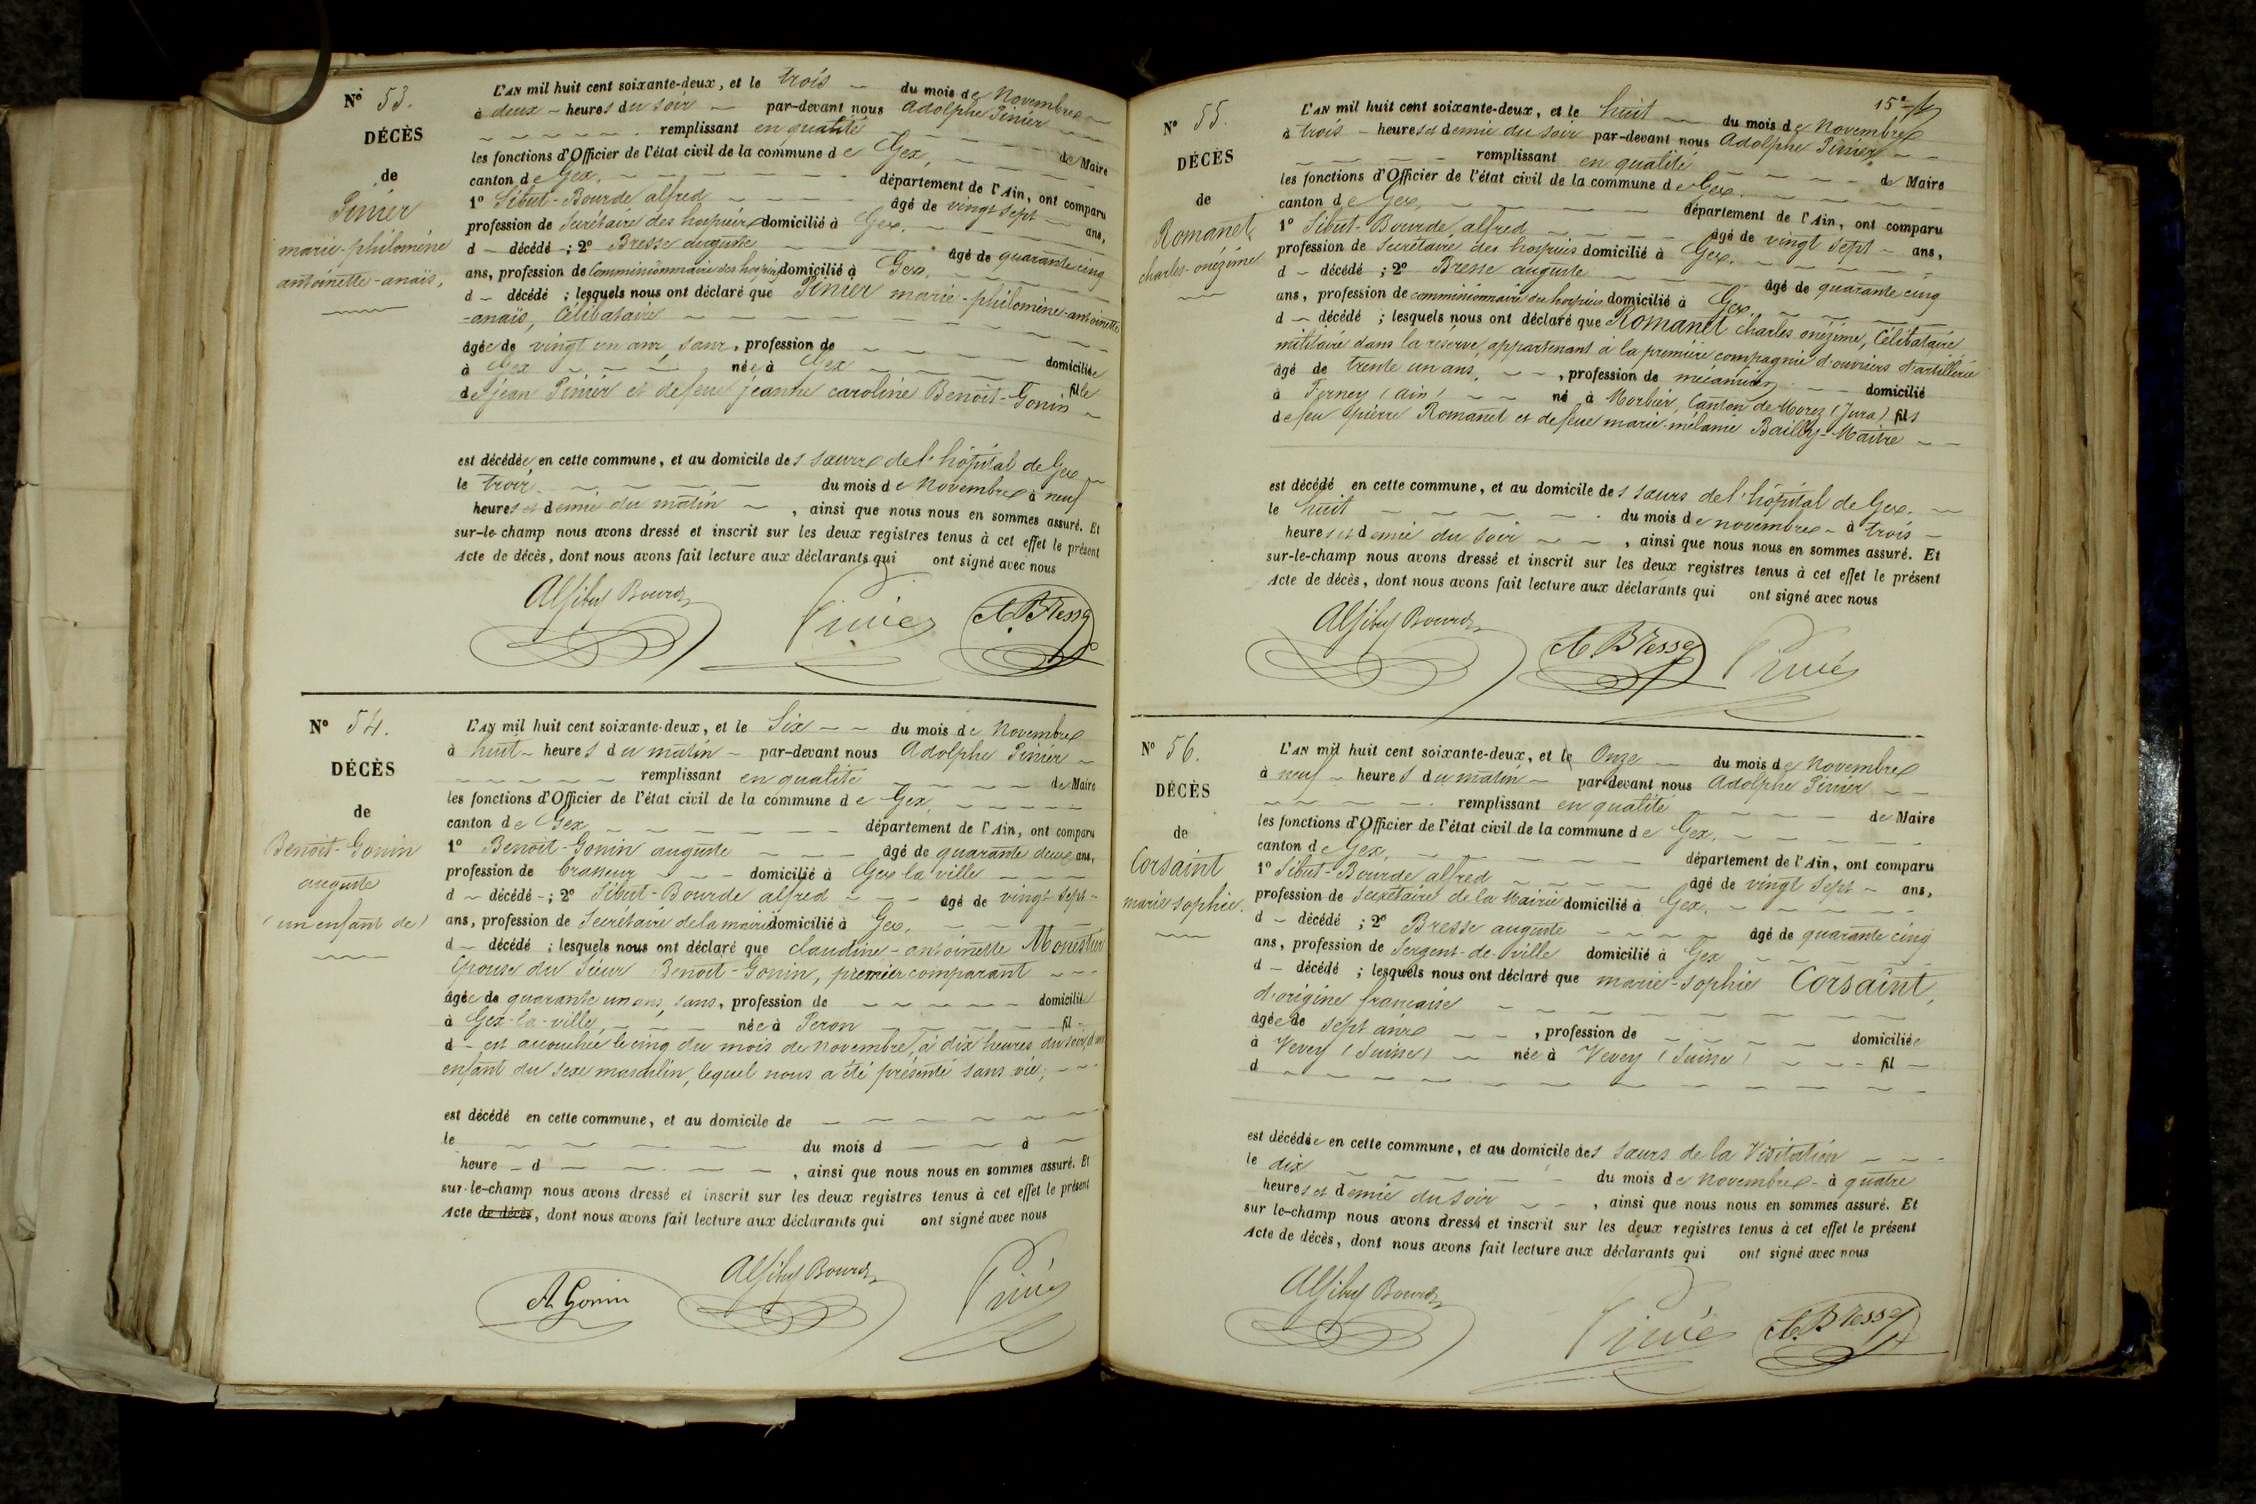 N° 53.
DÉCÈS
de
Pinier
marie-philomène
antoinette-anaïs,
L'AN mil huit cent soixante-deux, et le trois du mois de Novembre
à deux heures du soir par-devant nous Adolphe Pinier
remplissant en qualité de Maire
les fonctions d'Officier de l'état civil de la commune de Gex,
canton de Gex, département de l'Ain, ont comparu
1° Sibut-Bourde alfred âgé de vingt sept ans,
profession de Secrétaire des hospices domicilié à Gex.
d décédé ; 2° Bresse auguste âgé de quarante cinq
ans, profession de Commissionnaire des hospices domicilié à Gex.
d décédé ; lesquels nous ont déclaré que Pinier marie-philomène-antoinette
-anaïs, Célibataire
âgée de vingt un ans, sans, profession de domiciliée
à Gex née à Gex fille
de jean Pinier et de feue jeanne caroline Benoit-Gonin
est décédée en cette commune, et au domicile des sœurs de l'hôpital de Gex
le trois du mois de Novembre à neuf
heures et demie du matin, ainsi que nous nous en sommes assuré. Et
sur-le-champ nous avons dressé et inscrit sur les deux registres tenus à cet effet le présent
Acte de décès, dont nous avons fait lecture aux déclarants qui ont signé avec nous
Al Sibut Bourde Pinier A. Bresse
N° 54.
DÉCÈS
de
Benoit-Gonin
auguste
(un enfant de)
L'AN mil huit cent soixante-deux, et le Six du mois de Novembre
à huit heures du matin par-devant nous Adolphe Pinier
remplissant en qualité de Maire
les fonctions d'Officier de l'état civil de la commune de Gex,
canton de Gex département de l'Ain, ont comparu
1° Benoit-Gonin auguste âgé de quarante deux ans,
profession de brasseur domicilié à Gex la ville
d décédé ; 2° Sibut-Bourde alfred âgé de vingt sept
ans, profession de Secrétaire de la mairie domicilié à Gex,
d décédé ; lesquels nous ont déclaré que claudine-antoinette Monestier
Epouse du Sieur Benoit-Gonin, premier comparant
âgée de quarante un ans, sans, profession de domiciliée
à Gex-la-ville, née à Peron fil
d est accouchée le cinq du mois de Novembre, à dix heures du soir, d'un
enfant du sexe masculin, lequel nous a été présenté sans vie,
est décédé en cette commune, et au domicile de
le du mois d à
heure d, ainsi que nous nous en sommes assuré. Et
sur-le-champ nous avons dressé et inscrit sur les deux registres tenus à cet effet le présent
Acte de décès, dont nous avons fait lecture aux déclarants qui ont signé avec nous
A. Gonin Al Sibut Bourde Pinier
N° 55.
DÉCÈS
de
Romanet
charles-onézime
L'AN mil huit cent soixante-deux, et le huit du mois de Novembre
à trois heures et demie du soir par-devant nous Adolphe Pinier
remplissant en qualité de Maire
les fonctions d'Officier de l'état civil de la commune de Gex.
canton de Gex, département de l'Ain, ont comparu
1° Sibut-Bourde, alfred âgé de vingt sept ans,
profession de Secrétaire des hospices domicilié à Gex.
d décédé ; 2° Bresse auguste âgé de quarante cinq
ans, profession de commissionnaire des hospices domicilié à Gex,
d décédé ; lesquels nous ont déclaré que Romanet charles onézime, Célibataire
militaire dans la réserve, appartenant à la première compagnie d'ouvriers d'artillerie
âgé de trente un ans, profession de mécanicien domicilié
à Ferney (Ain) né à Morbier, Canton de Morez (Jura) fils
de feu pierre Romanet et de feue marie-mélanie Bailly-Maitre
est décédé en cette commune, et au domicile des sœurs de l'hôpital de Gex.
le huit du mois de novembre à trois
heures et demie du soir, ainsi que nous nous en sommes assuré. Et
sur-le-champ nous avons dressé et inscrit sur les deux registres tenus à cet effet le présent
Acte de décès, dont nous avons fait lecture aux déclarants qui ont signé avec nous
Al Sibut Bourde A. Bresse Pinier
N° 56.
DÉCÈS
de
Corsaint
marie sophie.
L'AN mil huit cent soixante-deux, et le Onze du mois de Novembre
à neuf heures du matin par-devant nous Adolphe Pinier
remplissant en qualité de Maire
les fonctions d'Officier de l'état civil de la commune de Gex,
canton de Gex, département de l'Ain, ont comparu
1° Sibut-Bourde alfred âgé de vingt sept ans,
profession de Secrétaire de la Mairie domicilié à Gex.
d décédé ; 2° Bresse auguste âgé de quarante cinq
ans, profession de Sergent-de-ville domicilié à Gex
d décédé ; lesquels nous ont déclaré que marie-sophie Corsaint,
d'origine française
âgée de sept ans, profession de domiciliée
à Vevey (Suisse) née à Vevey (Suisse) fil
d
est décédée en cette commune, et au domicile des sœurs de la Visitation
le dix du mois de Novembre à quatre
heures et demie du soir, ainsi que nous nous en sommes assuré. Et
sur le-champ nous avons dressé et inscrit sur les deux registres tenus à cet effet le présent
Acte de décès, dont nous avons fait lecture aux déclarants qui ont signé avec nous
Al Sibut Bourde Pinier A. Bresse